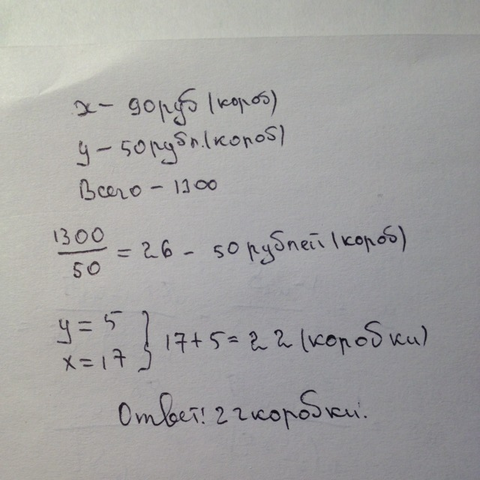 x – 90 руб (короб)
y – 50 рубл. (короб)
Всего – 1300
1300/50 = 26 – 50 рублей (короб)
y = 5
x = 17 } 17 + 5 = 22 (коробки)
Ответ: 22 коробки.